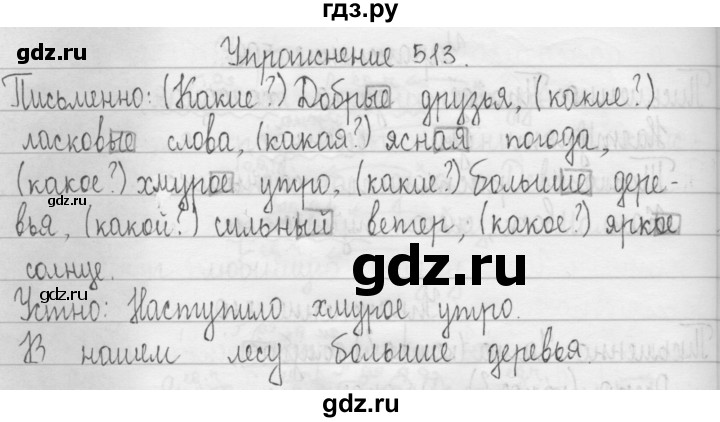 гдз.ру
gdz.ru
gdz.ru
Упражнение 513.
Письменно: (Какие?) Добрые друзья, (какие?)
ласковые слова, (какая?) ясная погода,
(какое?) хмурое утро, (какие?) большие дере-
вья, (какой?) сильный ветер, (какое?) яркое
gdz.ru
солнце.
gdz.ru
gdz.ru
Устно: Наступило хмурое утро.
В нашем лесу большие деревья.
gdz.ru